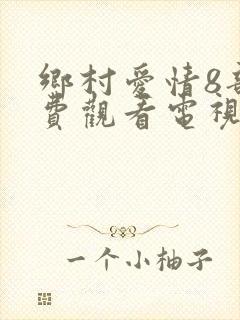 鄉村愛情8
費觀看電視
一个小柚子